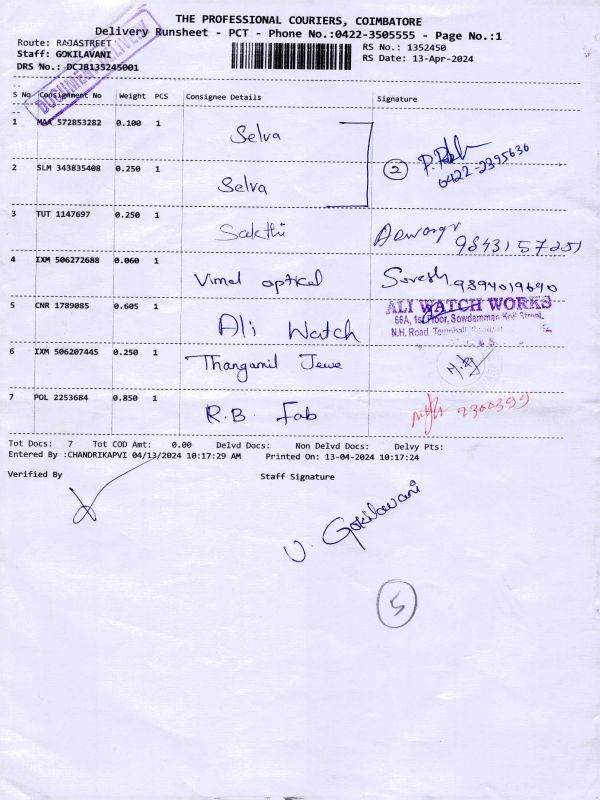 THE PROFESSIONAL COURIERS, COIMBATORE
Delivery Runsheet - PCT - Phone No.:0422-3505555 - Page No.:1
Route: RAJASTREET
RS No.: 1352450
Staff: GOKILAVANI
RS Date: 13-Apr-2024
DRS No.: DCJB135245001
DOCUMENT DELIVERY
S No Consignment No Weight PCS Consignee Details Signature
1 MAA 572853282 0.100 1 Selva
2 SLM 343835408 0.250 1 Selva
2 0422-2395636
3 TUT 1147697 0.250 1 Sakthi 9843157251
4 IXM 506272688 0.060 1 Vimel optical Suresh 9894019690
5 CNR 1789085 0.605 1 Ali Watch
ALI WATCH WORKS
66A, 1st Floor, Sowdamman Kovil Street,
N.H. Road, Townhall,
6 IXM 506207445 0.250 1 Thangamil Jewe
7 POL 2253684 0.850 1 R.B. Fab 7300399
Tot Docs: 7 Tot COD Amt: 0.00 Delvd Docs: Non Delvd Docs: Delvy Pts:
Entered By :CHANDRIKAPVI 04/13/2024 10:17:29 AM Printed On: 13-04-2024 10:17:24
Verified By Staff Signature
V. Gokilavani
5